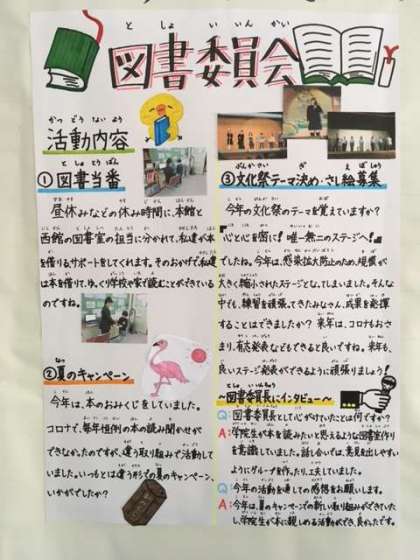 図書委員会
活動内容
①図書当番
昼休みなどの休み時間に、本館と
西館の図書室の担当に分かれて、私達が本
を借りるサポートをしてくれます。そのおかげで、私達
は本を借りて、ゆっくり学校や家で読むことができている
のですね。
②夏のキャンペーン
今年は、本のおみくじをしていました。
コロナで、毎年恒例の本の読み聞かせが
できなかったのですが、違う取り組みで活動し
ていました。いつもとは違う形での夏のキャンペーン、
いかがでしたか?
③文化祭テーマ決め・さし絵募集
今年の文化祭のテーマを覚えていますか?
『心と心を密に! 唯一無二のステージへ!』
でしたね。今年は、感染拡大防止のため、規模が
大きく縮小されたステージとなってしまいました。そんな
中でも、練習を頑張ってきたみなさん、成果を発揮
することはできましたか? 来年は、コロナもおさ
まり、有志発表などもできると良いですね。来年も、
良いステージ発表ができるように頑張りましょう!
~図書委員長にインタビュー~
Q:図書委員長として心がけていたことは何ですか?
A:学院生が本を読みたいと思えるような図書室作り
を意識していました。話し合いでは、意見を出しやすい
ようにグループを作ったり、工夫していました。
Q:今年の活動を通しての感想をお願いします。
A:今年は、夏のキャンペーンでの新しい取り組みができていた
し、学院生が本に親しめる活動ができ、良かったです。